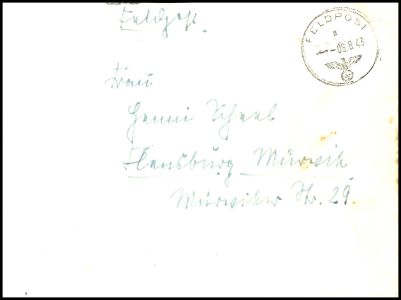 Feldpost
FELDPOST
a
-05.8.43
Frau
Henni Scheel
Flensburg Mürwik
Mürwiker Str. 29.